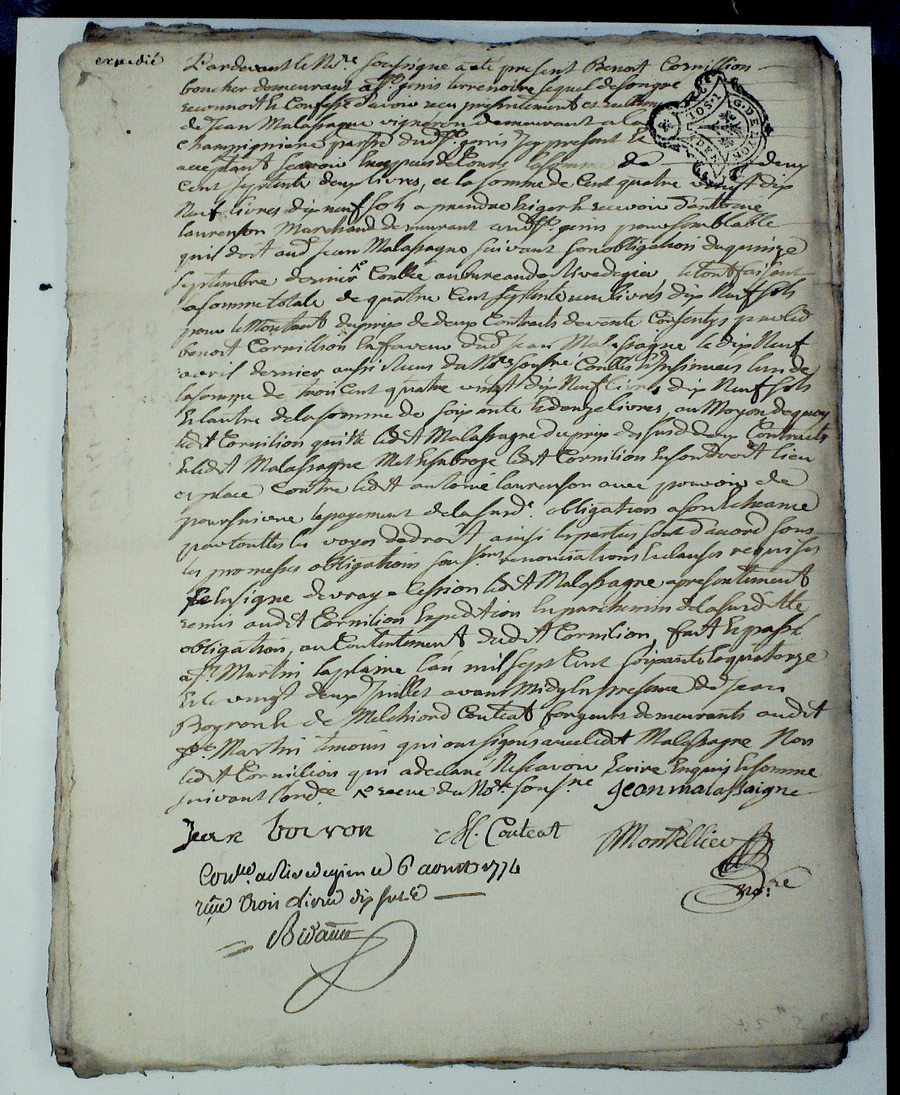 expedié
Pardevant le No.re soussigné a eté present Benoit Cornillion
boucher demeurant a St genis terrenoire lequel de son gre
reconnoit & Confesse d'avoir recu presentement et reellem.t
de Jean Malassagne vigneron demeurant a la
champigniere parsse dudt St genis Icy present &
acceptant scavoir En especes de Cours la somme de deux
cent septente deux livres, et la somme de Cent quatre vingt dix
Neuf livres dix neuf sols a prendre Exiger & recevoir d'antoine
laurenson Marchand demurant audt St genis pour semblable
quil doit aud. Jean Malassagne suivant son obligation du quinze
septembre dernier Conllée au bureau de rivedegier le tout faisant
la somme totale de quatre Cent septente une livres dix Neuf sols
pour le Montant du prix de deux Contracts de vente Consentys par led.
benoit Cornillion En faveur dud. Jean Malassagne le dix Neuf
avril dernier aussi Recus du No.re sousné Conllés & Insinués lun de
la somme de trois Cent quatre vingt dix Neuf livres dix Neuf sols
Et lautre de la somme de soixante & douze livres, au Moyen de quoy
ledit Cornilion quitte ledit Malassagne du prix desusd. deux Contracts
Et ledit Malassagne Met & subroge ledit Cornilion En son droit lieu
et place Contre ledit antoine laurenson avec pouvoir de
poursuivre le payement de lasusd. obligation a son Echeance
par touttes les voyes de droit ainsi les parties sont d'accord sous
les promesses obligations soumons renonciations & clauses requises
& En signe de vraye Cession ledit Malassagne a presentement
remis audit Cornilion Expedition En parchemin de la susditte
obligation, au Contentement dudit Cornilion, fait & passé
a St Martin la plaine lan mil sept Cent soixante & quatorze
Et le vingt deux Juillet avant Midy En presence de Jean
Boyron & de Melchiord Couteat forgeurs demeurants audit
St Martin temoins qui ont signés avec ledit Malassagne Non
ledit Cornilion qui a declaré Ne scavoir Ecrire Enquis & sommé
suivant lord.ce Et recue du No.re sous.né jean malassaigne
Jean boiron M. Couteat Montellier
No.re
Conllé a rivedegier le 6 aoust 1774
recu trois livres dix sols
G. DE LYON